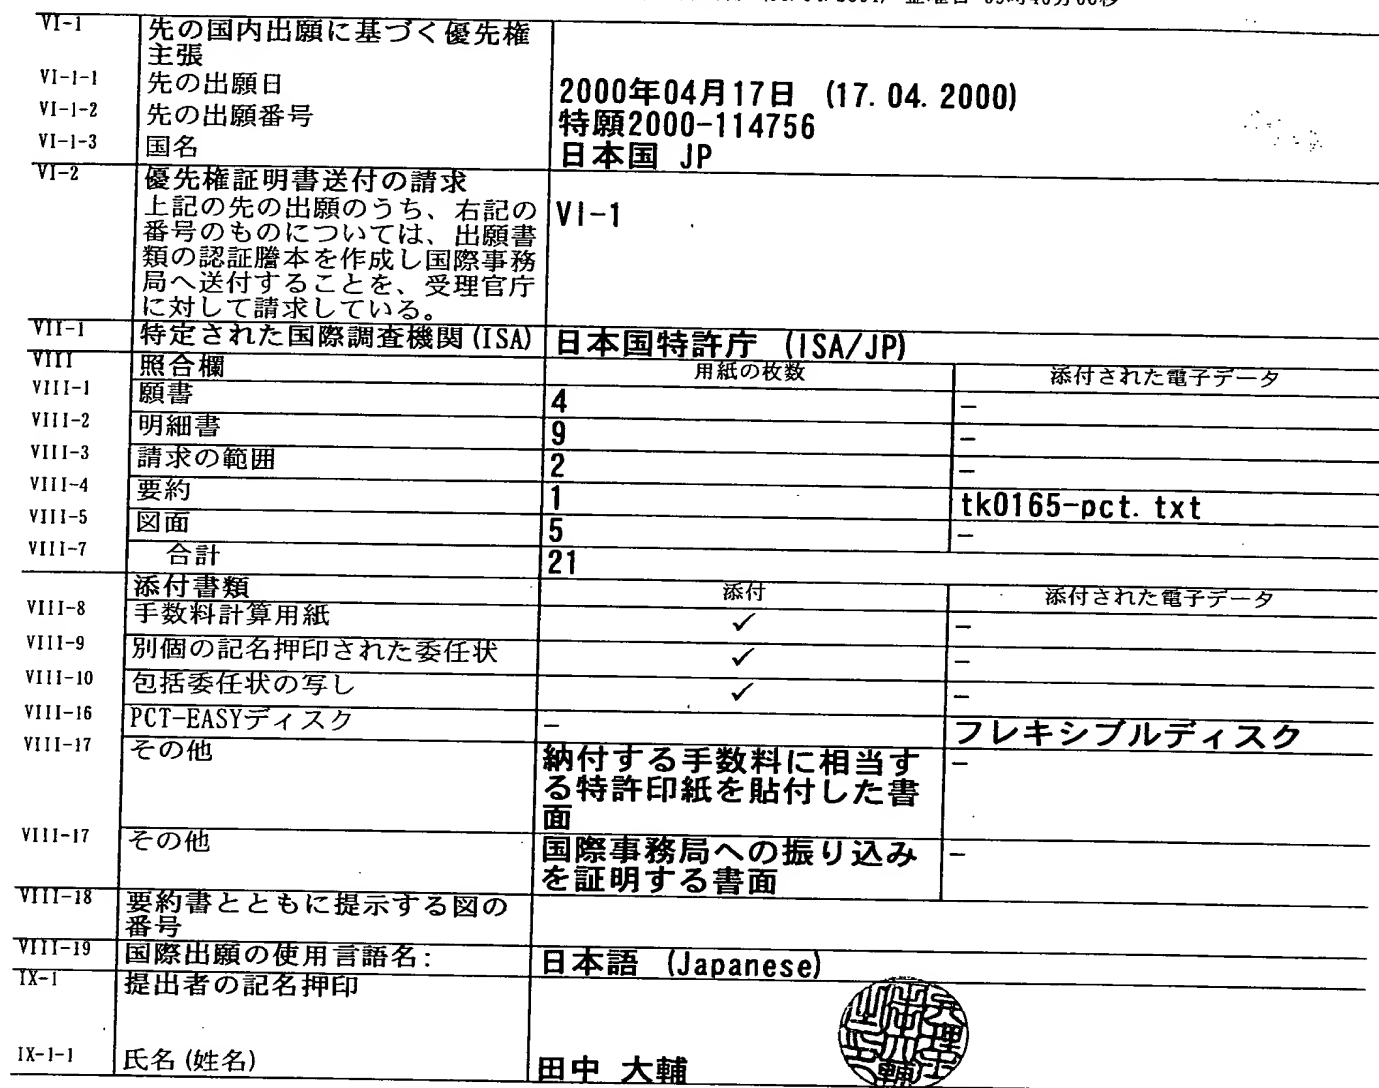 金曜日
VI-1 先の国内出願に基づく優先権
主張
VI-1-1 先の出願日 2000年04月17日 (17. 04. 2000)
VI-1-2 先の出願番号 特願2000-114756
VI-1-3 国名 日本国 JP
VI-2 優先権証明書送付の請求
上記の先の出願のうち、右記の VI-1
番号のものについては、出願書
類の認証謄本を作成し国際事務
局へ送付することを、受理官庁
に対して請求している。
VII-1 特定された国際調査機関(ISA) 日本国特許庁 (ISA/JP)
VIII 照合欄 用紙の枚数 添付された電子データ
VIII-1 願書 4 -
VIII-2 明細書 9 -
VIII-3 請求の範囲 2 -
VIII-4 要約 1 tk0165-pct. txt
VIII-5 図面 5 -
VIII-7 合計 21
添付書類 添付 添付された電子データ
VIII-8 手数料計算用紙 ✓ -
VIII-9 別個の記名押印された委任状 ✓ -
VIII-10 包括委任状の写し ✓ -
VIII-16 PCT-EASYディスク - フレキシブルディスク
VIII-17 その他 納付する手数料に相当す -
る特許印紙を貼付した書
面
VIII-17 その他 国際事務局への振り込み -
を証明する書面
VIII-18 要約書とともに提示する図の
番号
VIII-19 国際出願の使用言語名: 日本語 (Japanese)
IX-1 提出者の記名押印
IX-1-1 氏名(姓名) 田中 大輔